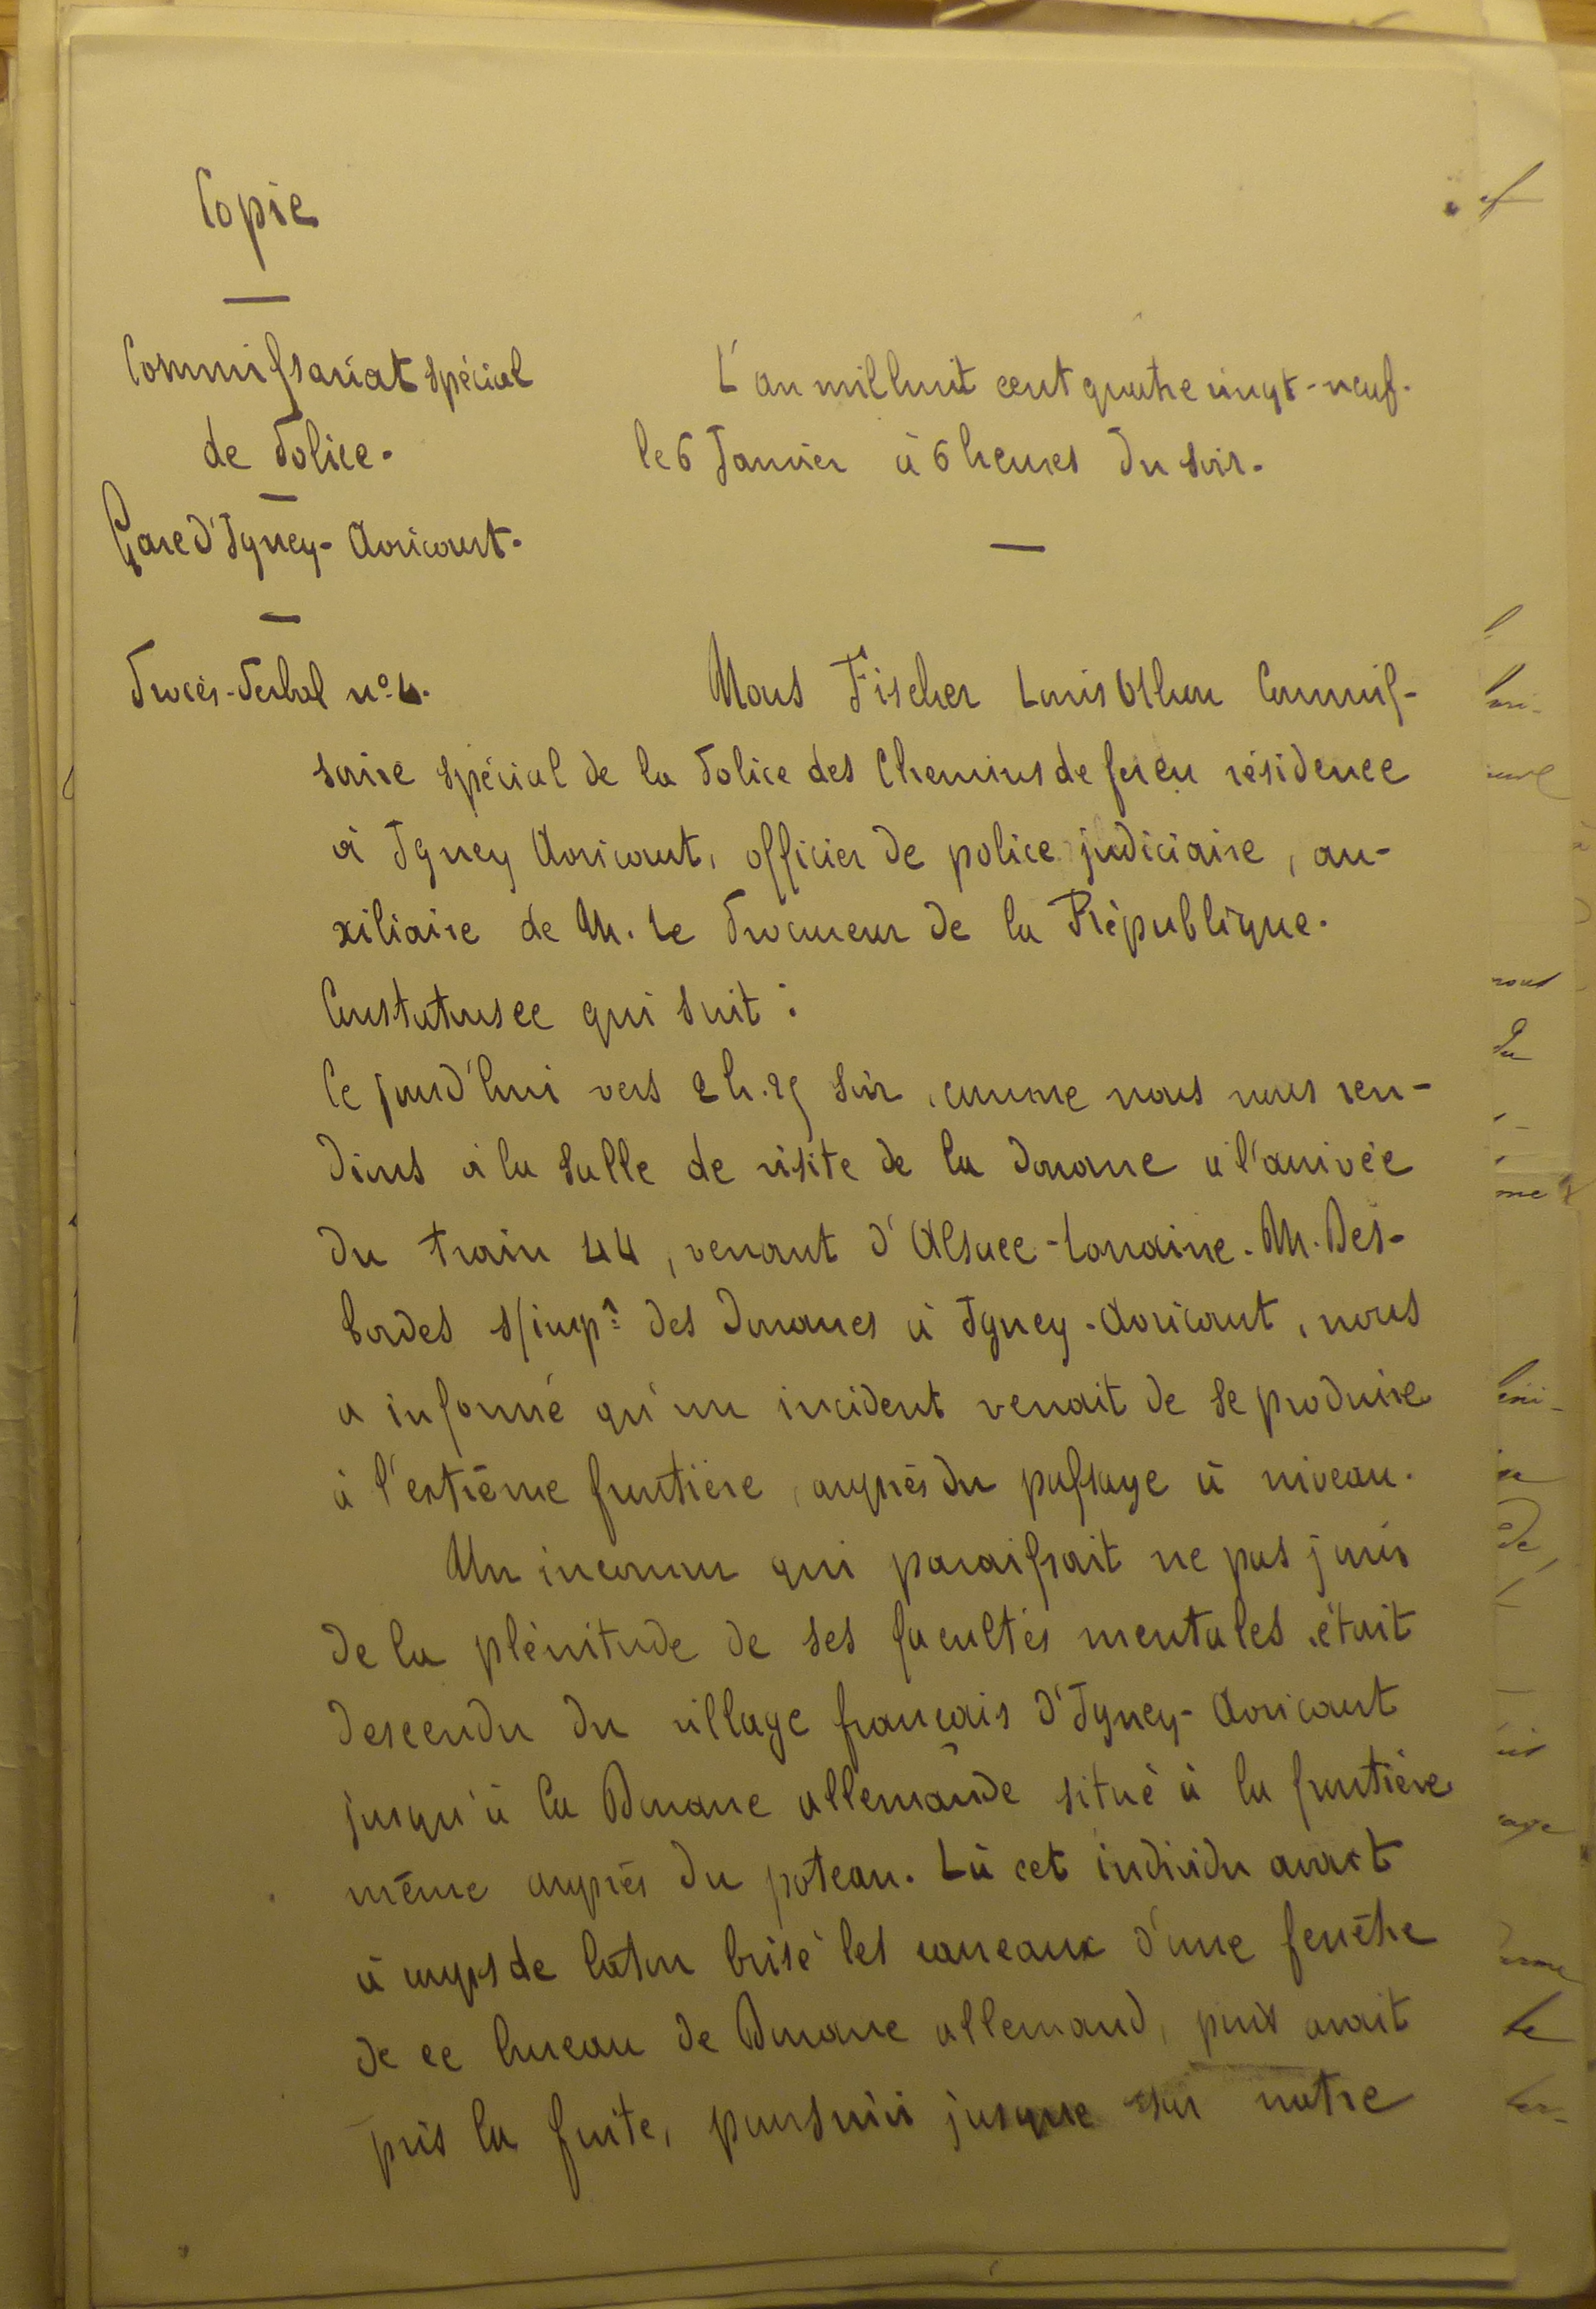 Copie
Commissariat spécial
de Police.
Gare d'Igney-Avricourt.
Procès-Verbal n° 4.
L'an mil huit cent quatre vingt-neuf.
le 6 Janvier à 6 heures du soir.
Nous Fischer Louis Othon Commis-
saire spécial de la Police des Chemins de fer en résidence
à Igney Avricourt, officier de police judiciaire, au-
xiliaire de M. le Procureur de la République.
Constatons ce qui suit :
Ce jourd'hui vers 2 h. 25 soir, comme nous nous ren-
dions à la salle de visite de la douane a l'arrivée
du train 44, venant d'Alsace-Lorraine. M. Des-
bordes s/inspr des Douanes à Igney-Avricourt, nous
a informé qu'un incident venait de se produire
à l'extrême frontière, auprès du passage à niveau.
Un inconnu qui paraissait ne pas jouir
de la plénitude de ses facultés mentales, était
descendu du village français d'Igney-Avricourt
jusqu'à la Douane allemande situé à la frontière
même auprès du poteau. Là cet individu avait
à coups de bâton brisé les carreaux d'une fenêtre
de ce bureau de Douane allemand, puis avait
pris la fuite, poursuivi jusque sur notre